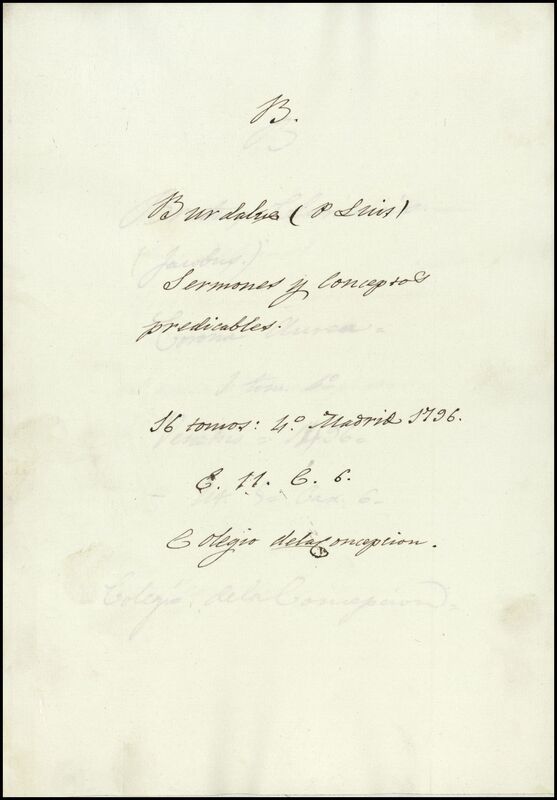 B.
Burdalue (P Luis)
Sermones y Conceptos
predicables.
16 tomos: 4º. Madrid 1796.
E. 11. C. 6.
Colegio dela Concepcion.
(Jacobus.)
1 tom. 4º
Colegio dela Concepcion